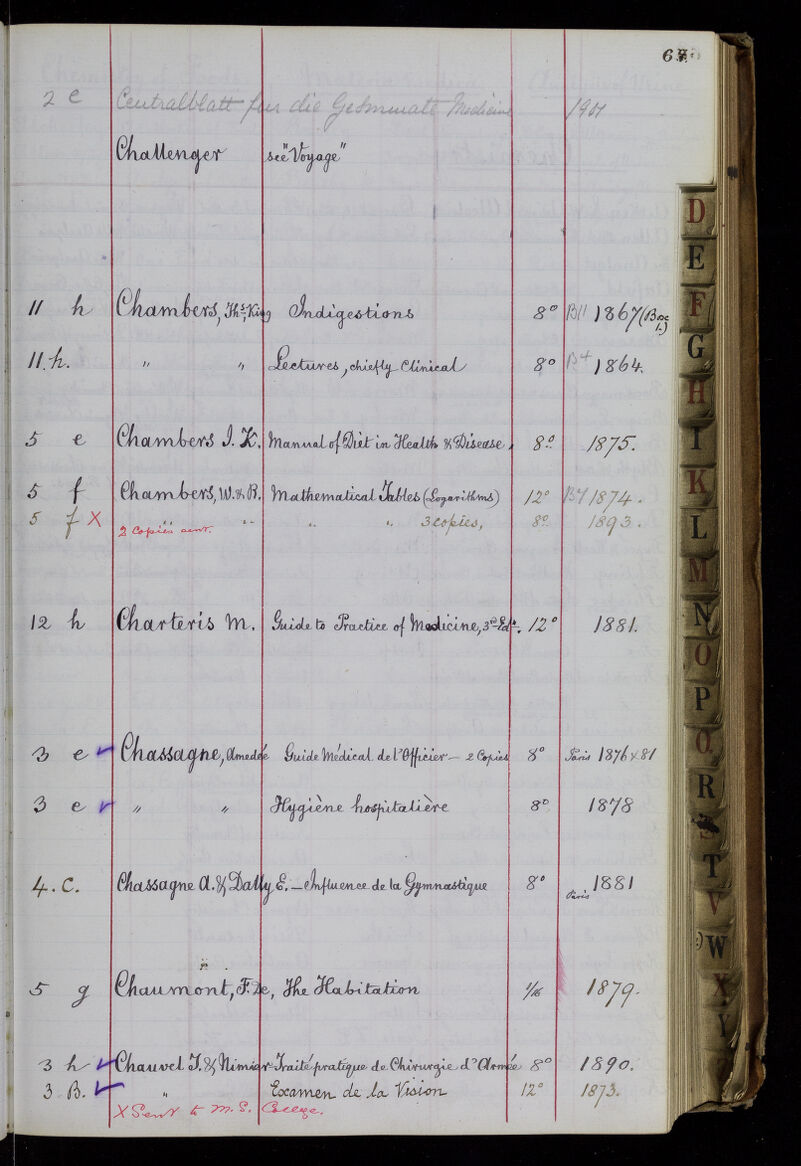 67
2 e Centralblatt für die Gesammate Medicine 1907
Challenger see "Voyage"
11 h Chambers, Ths King Indigestions 8o B11 1867 (Box 1.)
11. h. " " Lectures, chiefly Clinical 8o B4 1864.
5 e Chambers I. K. Manual of Diet in Health & Disease, 8o 1875.
5 f Chambers, W. & R. Mathematical Tables (Logarithms) 12o B7 1874.
5 f X " " " " 3 copies, 8o 1893.
2 Copies sent.
12 h Charteris M. Guide to Practice of Medicine, 3rd Edn. 12o 1881.
3 e Chassagne, Amedée Guide Médical de l'Officier — 2 Copies 8o Paris 1876 & 81
3 e " " Hygiène hospitalière 8o 1878
4. C. Chassagne A. & Dally, E. — Influence de la Gymnastique 8o Paris 1881
5 g Chaumont, F. De, The Habitation 1/16 1879.
3 h Chauvel J. & Nimier Traité pratique de Chirurgie d'Armée 8o 1890.
3. B. " Examen de la Vision 12o 1873.
X Sent to M. S. College.
D
E
F
G
H
I
K
L
M
N
O
P
Q
R
S
T
V
W
X
Y